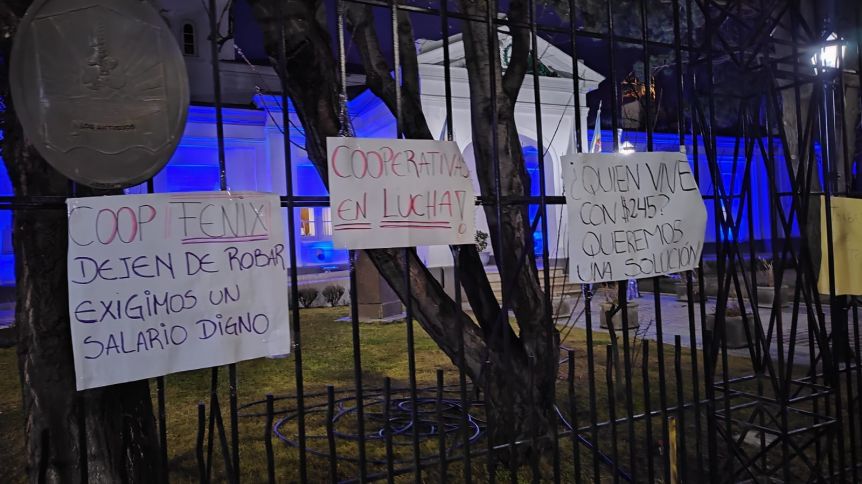 LOS ANTIGUOS
COOP FENIX
DEJEN DE ROBAR
EXIGIMOS UN
SALARIO DIGNO
COOPERATIVAS
EN LUCHA!
¿QUIEN VIVE
CON $245?
QUEREMOS
UNA SOLUCIÓN